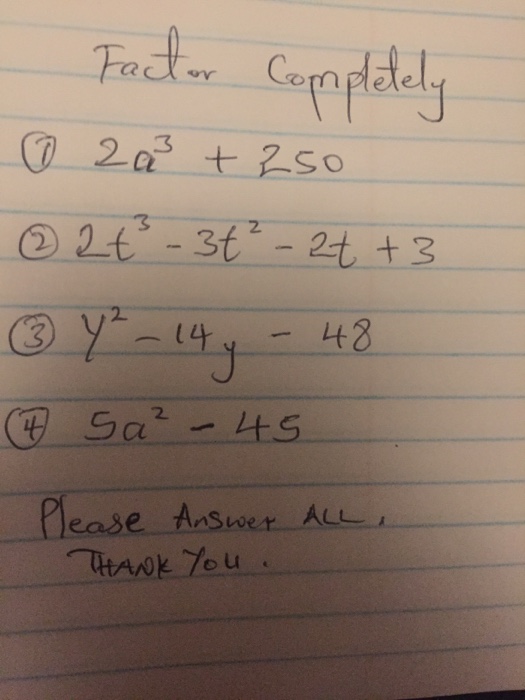 Factor Completely
① 2a³ + 250
② 2t³ - 3t² - 2t + 3
③ y² - 14y - 48
④ 5a² - 45
Please Answer ALL.
THANK You.